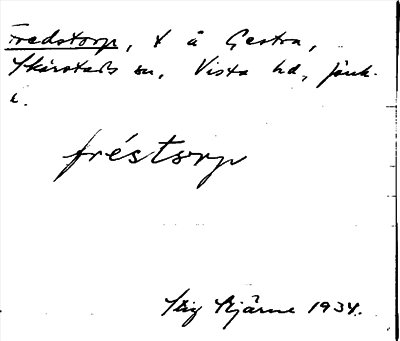 Fredstorp, t å Gestra,
Skärstads sn, Vista hd, Jönk.
l.
fréstorp
Stig Stjärne 1934.